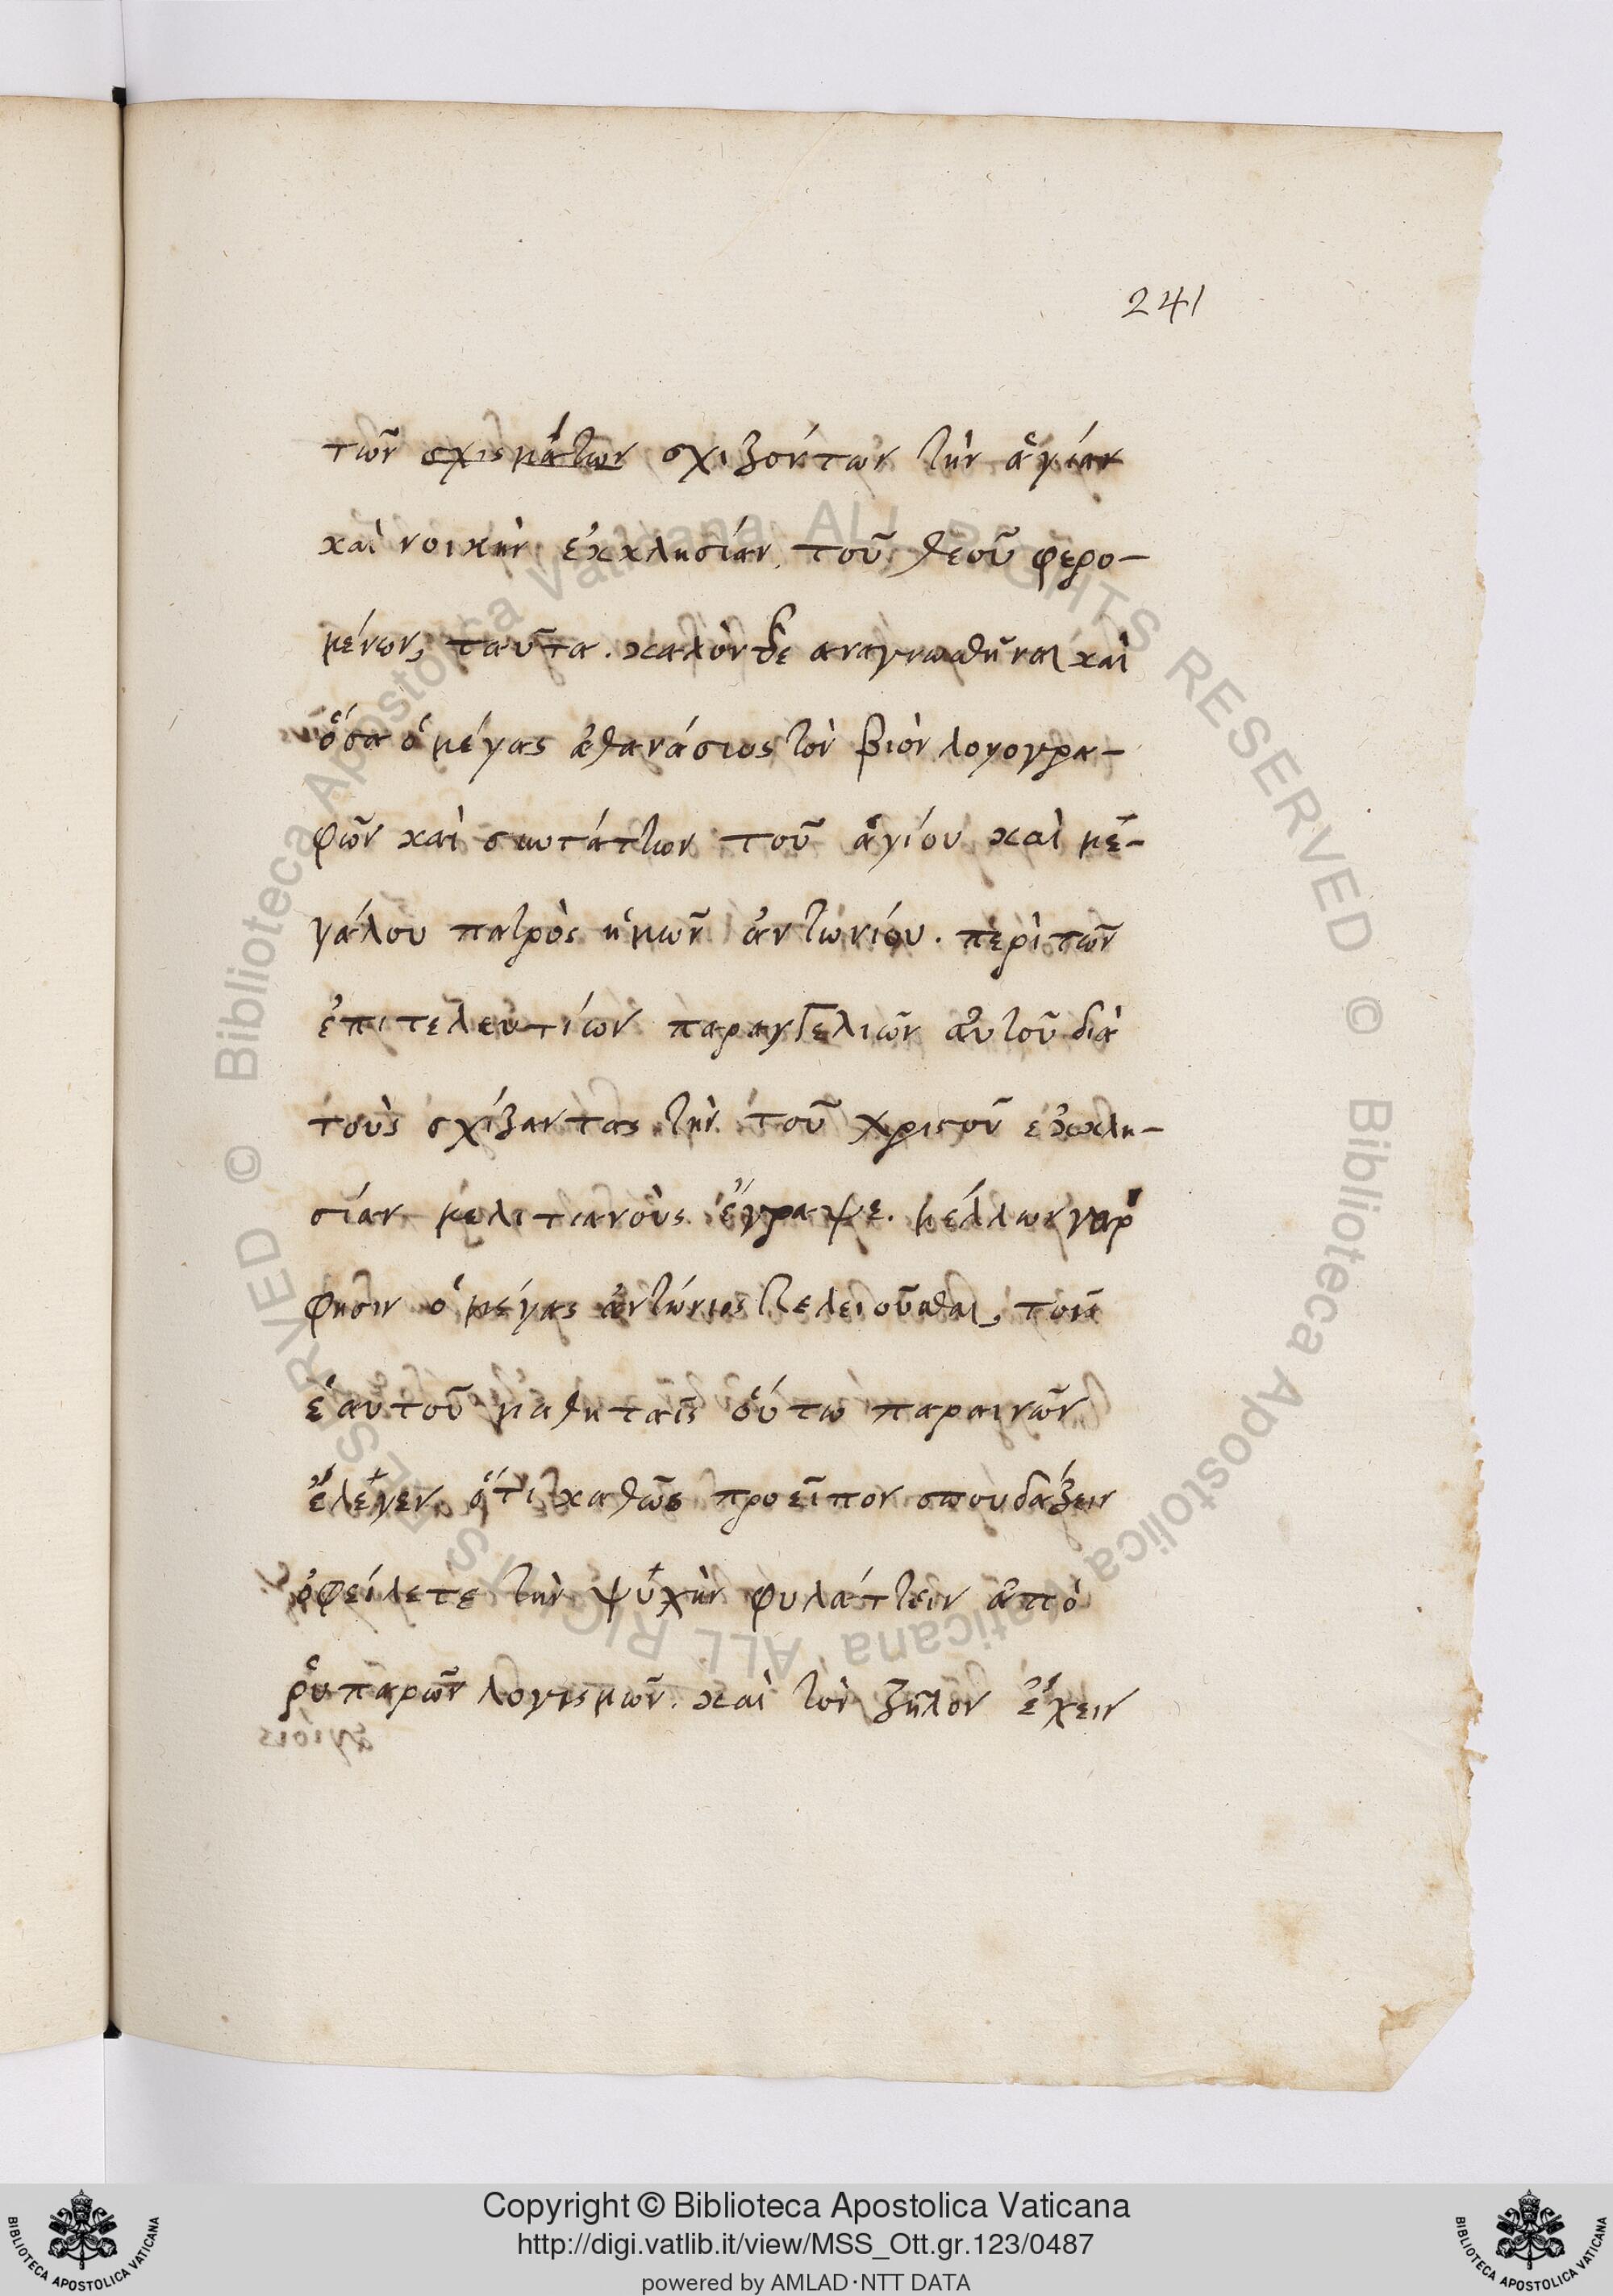 241
τῶν σχισμάτων σχιζόντων τὴν ἁγίαν
καὶ νοικὴν ἐκκλησίαν, τοῦ θεοῦ φερο-
μένων, ταῦτα. καλὸν δὲ αναγνωσθῆναι καὶ
ὅσα ὁ μέγας ἀθανάσιος τὸν βιὸν λογογρα-
φῶν καὶ συντάττων τοῦ ἁγίου καὶ με-
γάλου πατρὸς ἡμῶν ἀντωνίου. περὶ τῶν
ἐπιτελευτίων παραγγελιῶν αὐτοῦ διὰ
τοὺς σχίζαντας τὴν τοῦ χριστοῦ ἐκκλη-
σίαν μελιτιανοὺς ἔγραψε. μέλλων γὰρ
φησιν ὁ μέγας ἀντώνιος τελειοῦσθαι, τοῖς
ἑαυτοῦ μαθηταῖς οὕτω παραινῶν
ἔλεγεν, ὅτι καθῶς προεῖπον σπουδάζειν
ὀφείλετε τὴν ψυχὴν φυλάττειν ἀπὸ
ῥυπαρῶν λογισμῶν. καὶ τὸν ζῆλον ἔχειν
Copyright © Biblioteca Apostolica Vaticana
http://digi.vatlib.it/view/MSS_Ott.gr.123/0487
powered by AMLAD·NTT DATA
BIBLIOTECA APOSTOLICA VATICANA
BIBLIOTECA APOSTOLICA VATICANA
© Biblioteca Apostolica Vaticana ALL RIGHTS RESERVED
© Biblioteca Apostolica Vaticana ALL RIGHTS RESERVED